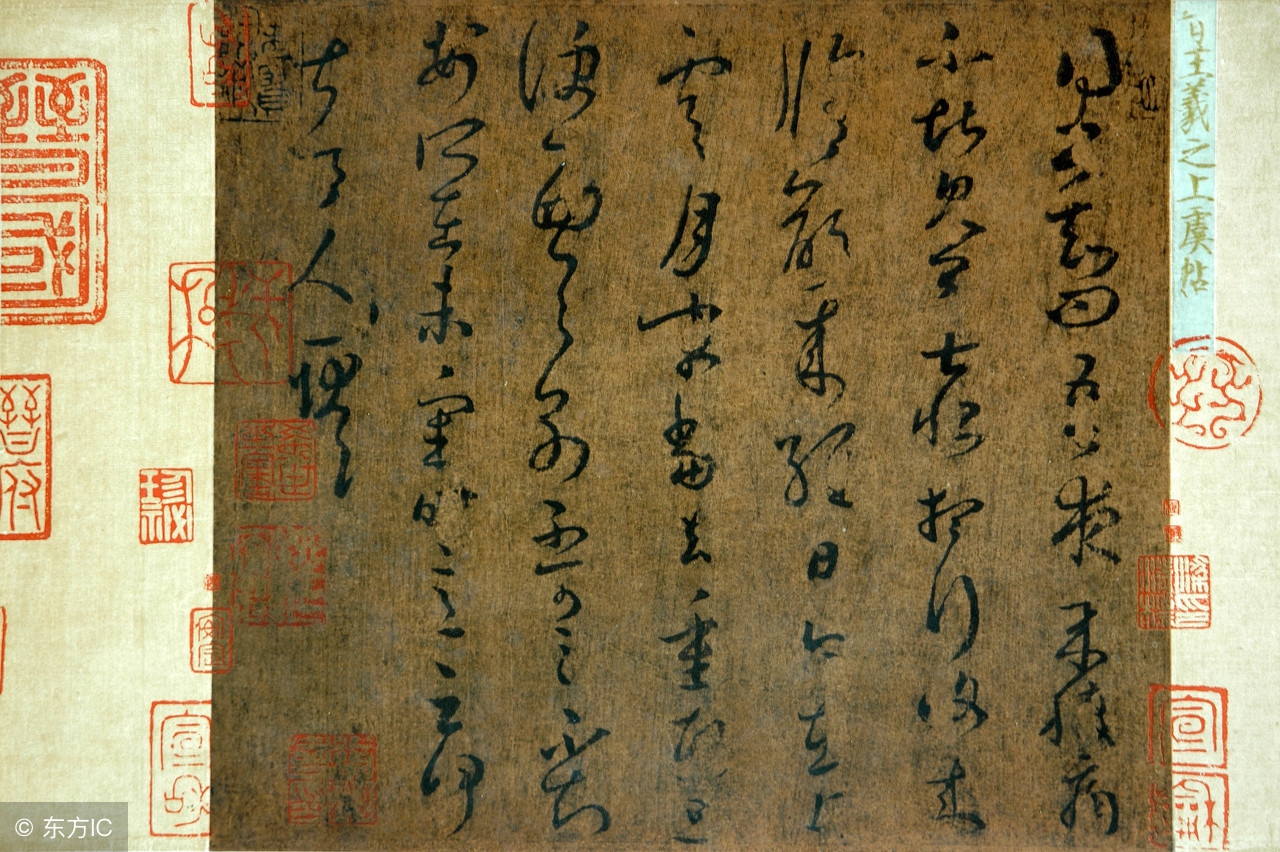 晉王羲之上虞帖
得書知問吾夜來腹痛
不堪見卿甚恨想行復來
脩齡來經日今在上
虞月末當去重熙旦
便西與別不可言不知
安所在未審時意云何
甚令人耿耿
晉府
宣和
© 东方IC